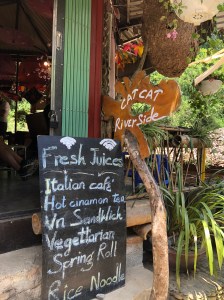 CAT CAT
RiverSide
Fresh Juices
Italian cafe
Hot cinamon tea
Vn Sandwich
Vegettarian
Spring Roll
Rice Noodle